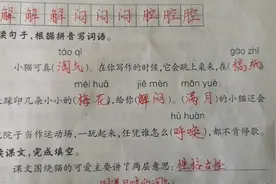 解 解 解 闷 闷 闷 腔 腔 腔
读句子,根据拼音写词语。
táo qì gǎo zhǐ
小猫可真(淘气)。在你写作的时候,它会跳上桌来,在(稿纸)
méi huā jiě mèn mǎn yuè
上踩印几朵小小的(梅花),给你(解闷)。(满月)的小猫还会
hū huàn
院子当作运动场,一玩起来,任凭谁怎么(呼唤),都不肯停歇。
读课文,完成填空。
课文围绕猫的可爱主要讲了两层意思:性格古怪